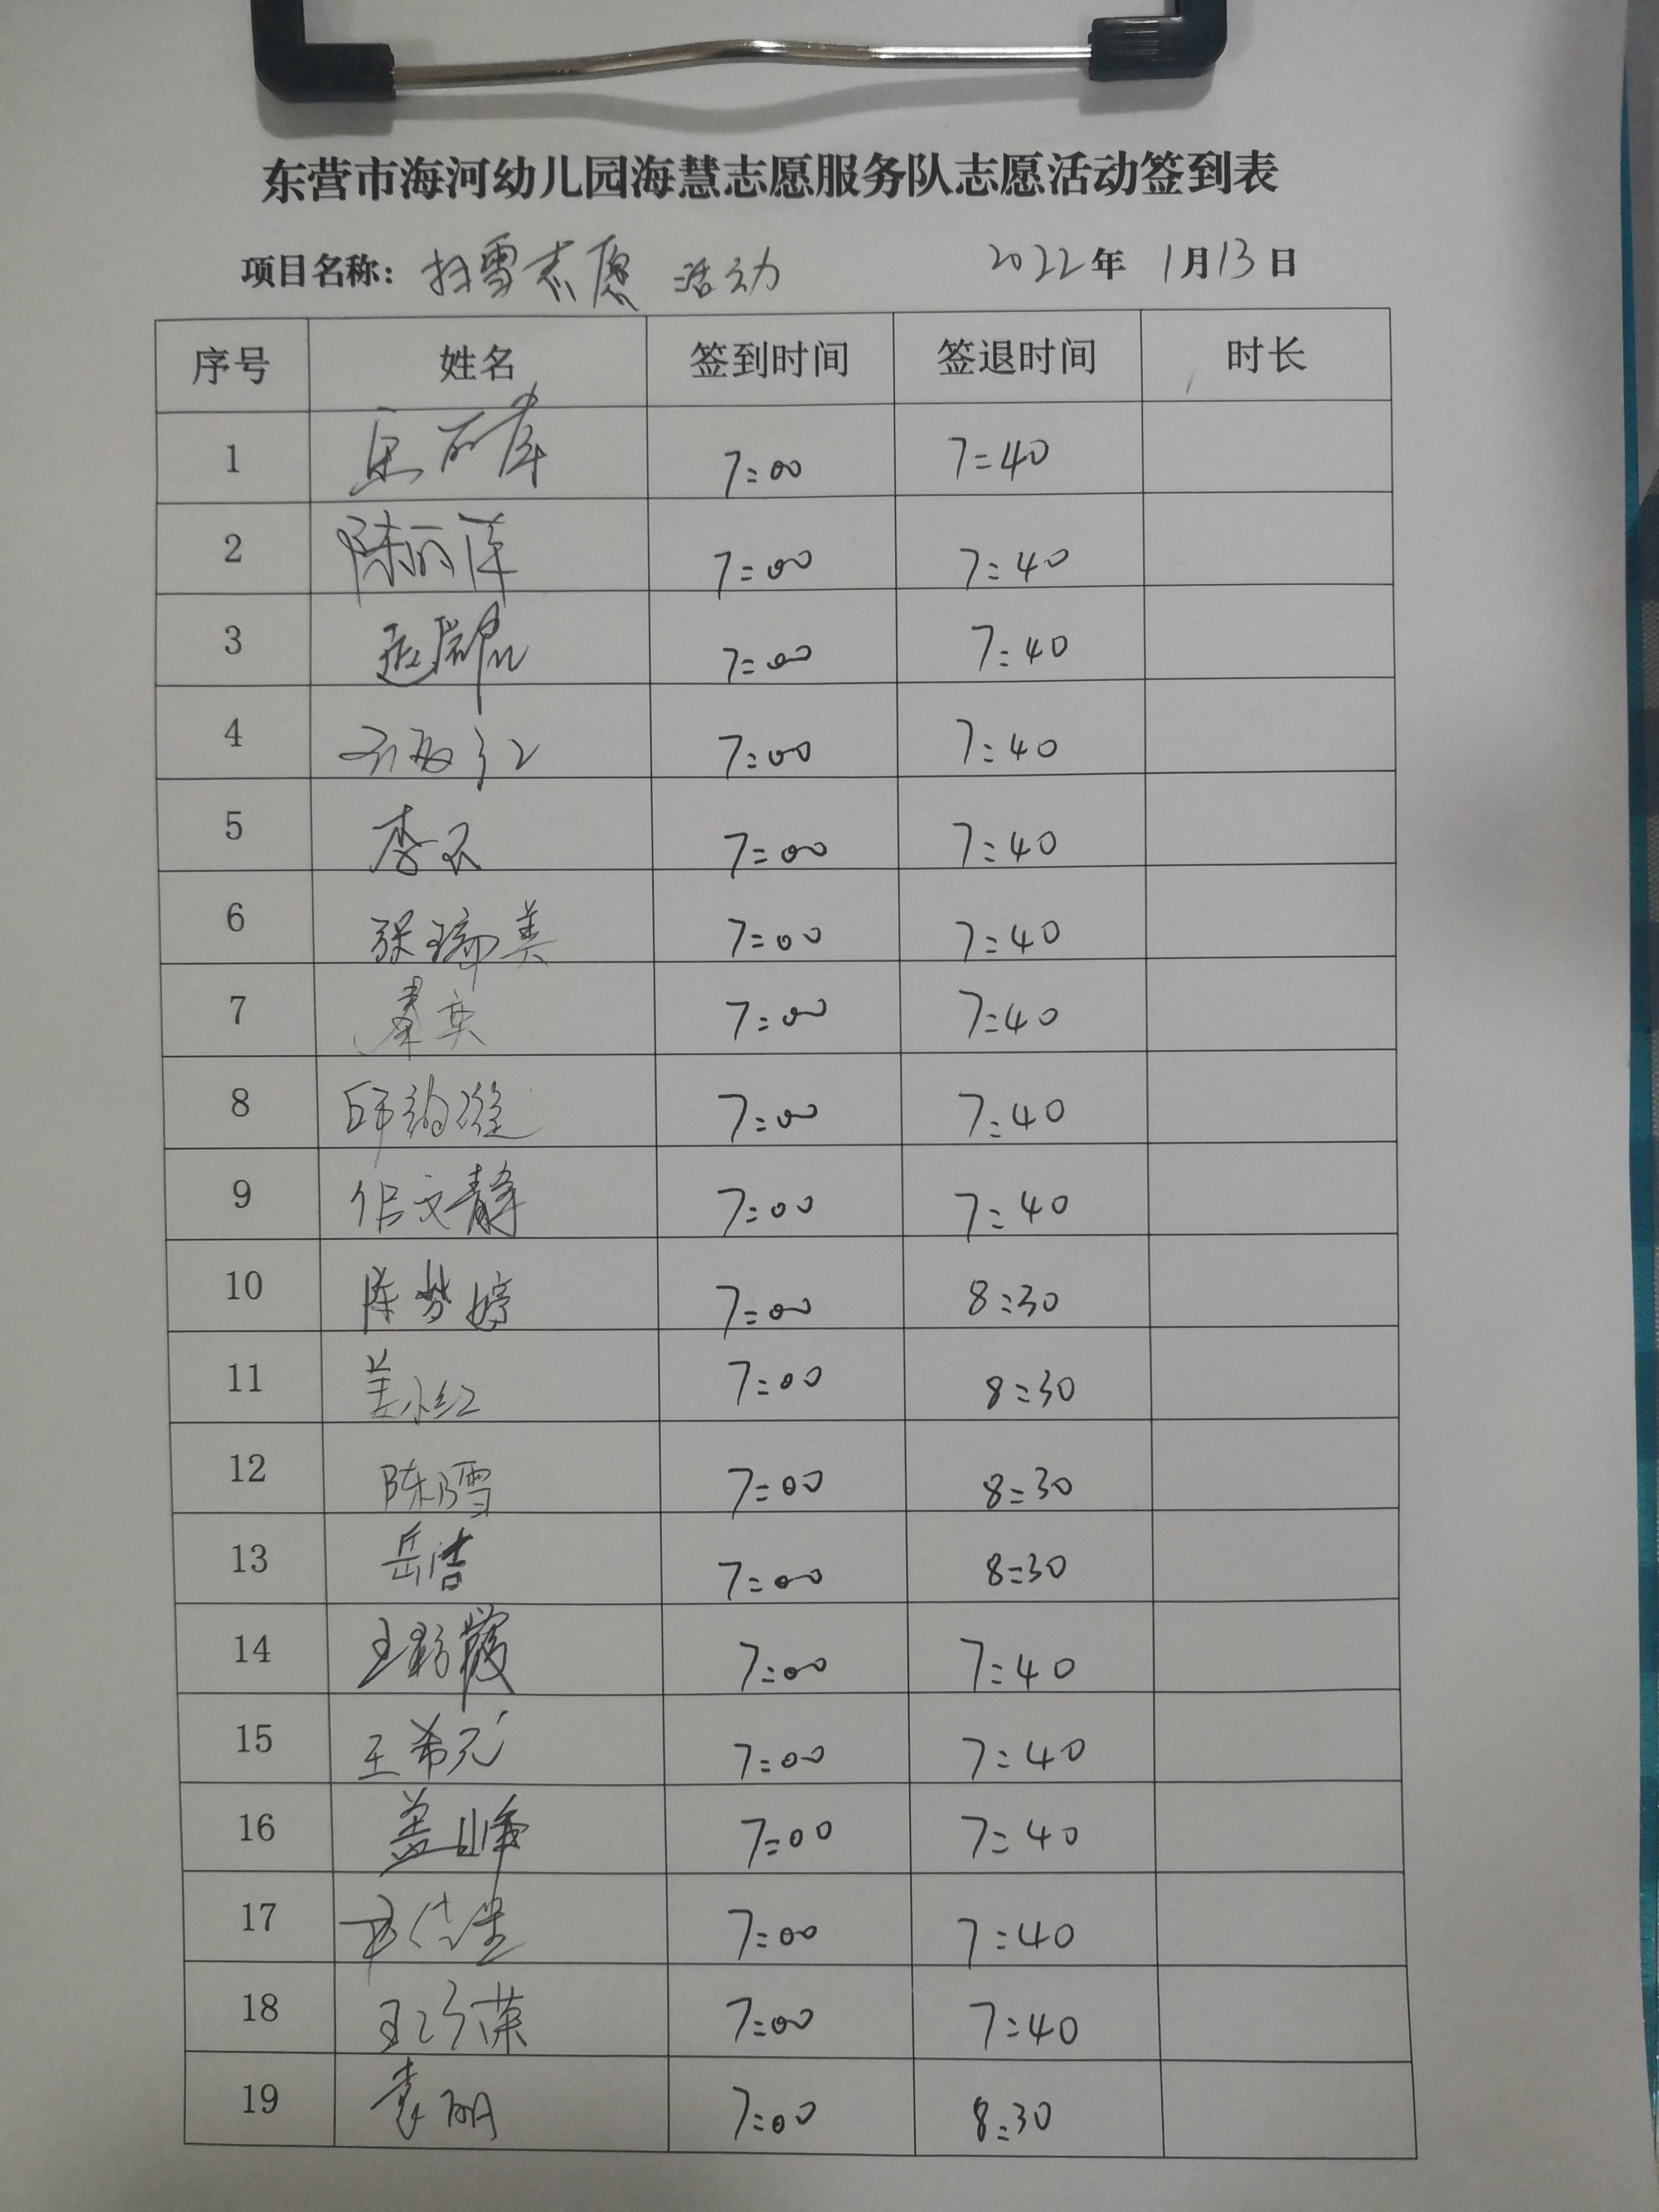 东营市海河幼儿园海慧志愿服务队志愿活动签到表
项目名称：扫雪志愿 活动 2022年 1月13日
序号 姓名 签到时间 签退时间 时长
1 7:00 7:40
2 陈丽萍 7:00 7:40
3 7:00 7:40
4 7:00 7:40
5 7:00 7:40
6 张瑞美 7:00 7:40
7 秦英 7:00 7:40
8 7:00 7:40
9 任文静 7:00 7:40
10 陈梦婷 7:00 8:30
11 姜小红 7:00 8:30
12 陈雪 7:00 8:30
13 岳洁 7:00 8:30
14 王彩霞 7:00 7:40
15 王希元 7:00 7:40
16 盖峰 7:00 7:40
17 7:00 7:40
18 7:00 7:40
19 袁丽 7:00 8:30